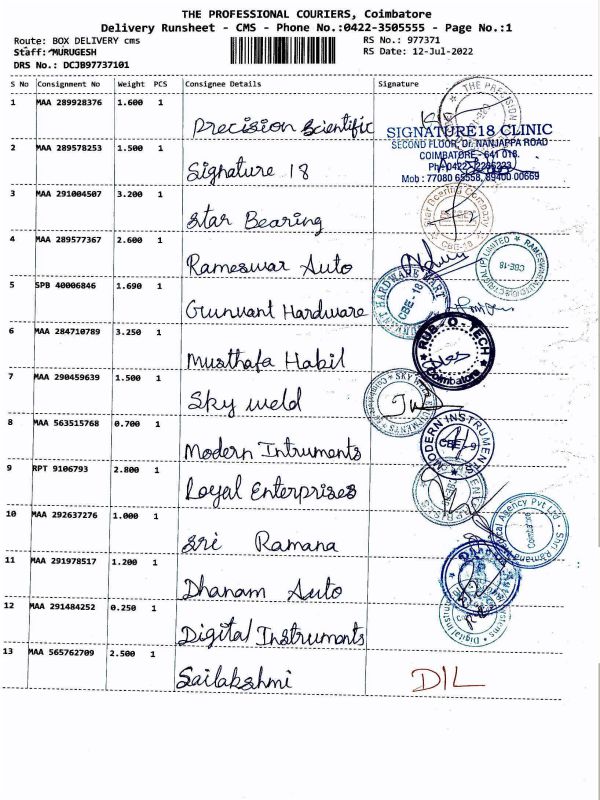 THE PROFESSIONAL COURIERS, Coimbatore
Delivery Runsheet - CMS - Phone No.:0422-3505555 - Page No.:1
Route: BOX DELIVERY cms RS No.: 977371
Staff: MURUGESH RS Date: 12-Jul-2022
DRS No.: DCJB97737101
S No Consignment No Weight PCS Consignee Details Signature
1 MAA 289928376 1.600 1 Precision Scientific
THE PRECISION
SIGNATURE18 CLINIC
SECOND FLOOR, Dr. NANJAPPA ROAD
COIMBATORE - 641 018.
Mob : 77080 65558, 89400 00669
2 MAA 289578253 1.500 1 Signature 18
3 MAA 291004507 3.200 1 Star Bearing
Star Bearing Company
CBE-18
4 MAA 289577367 2.600 1 Rameswar Auto
CBE-18
5 SPB 40006846 1.690 1 Gunvant Hardware
HARDWARE MART
CBE-18
6 MAA 284710789 3.250 1 Musthafa Habil
RUB-O-TECH
Coimbatore
7 MAA 290459639 1.500 1 Sky weld
SKY
8 MAA 563515768 0.700 1 Modern Intruments
MODERN INSTRUMENTS
CBE-9
9 RPT 9106793 2.800 1 Loyal Enterprises
10 MAA 292637276 1.000 1 Sri Ramana
Sri Ramana
Agency Pvt Ltd
Coimbatore
11 MAA 291978517 1.200 1 Dhanam Auto
12 MAA 291484252 0.250 1 Digital Instruments
Digital
13 MAA 565762709 2.500 1 Sailakshmi DIL